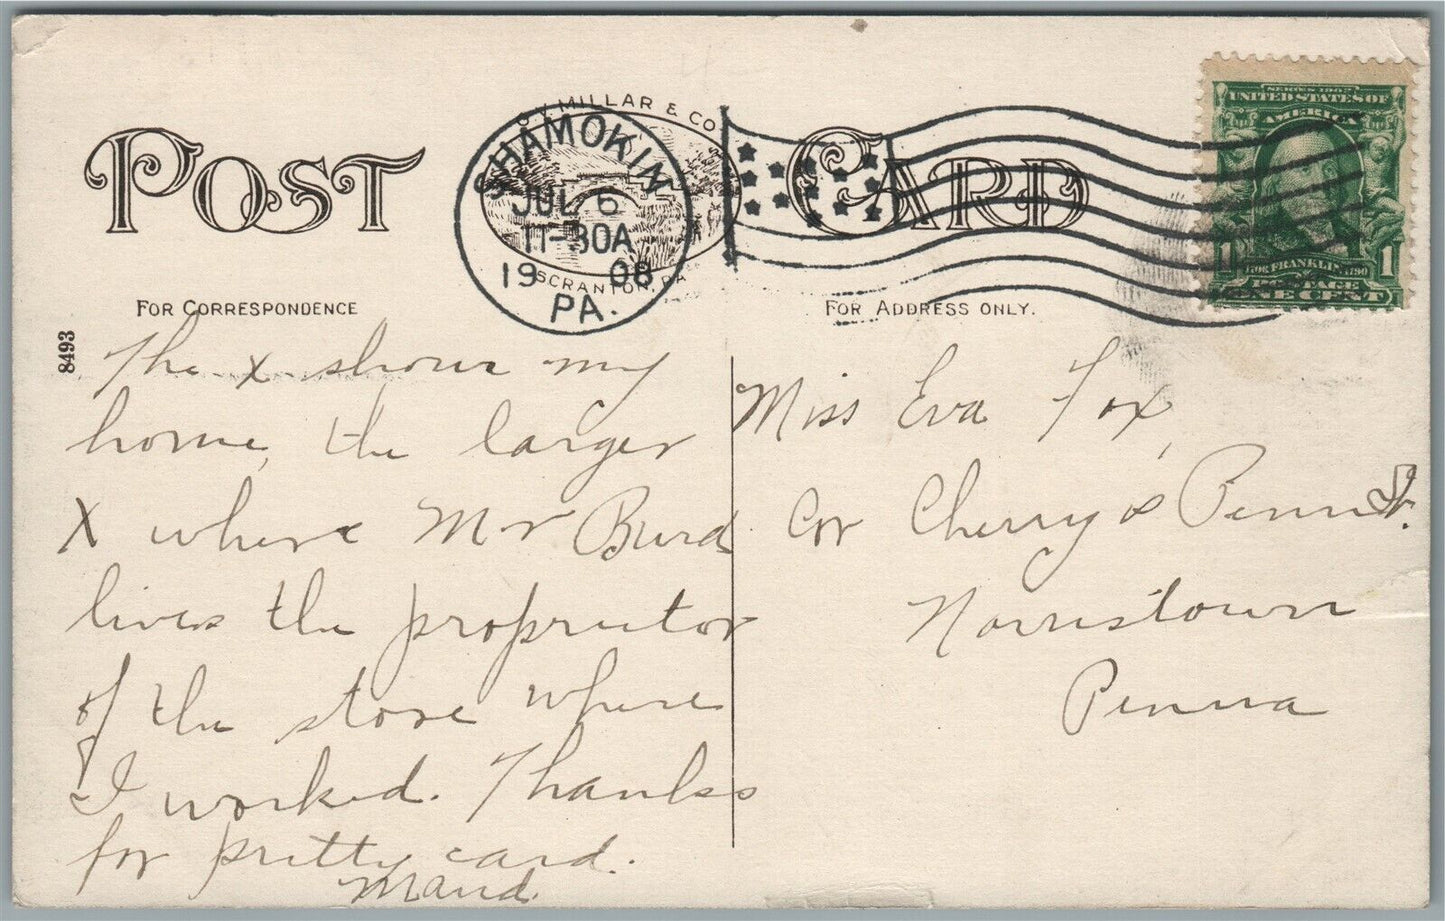 POST CARD
C. V. MILLAR & CO.
SCRANTON, PA
SHAMOKIN
JUL 6
11-30A
1908
PA.
SERIES 1902
UNITED STATES OF
AMERICA
1 FRANKLIN 1790 1
POSTAGE
ONE CENT
FOR CORRESPONDENCE
FOR ADDRESS ONLY.
8493
The x shows my
home, the larger
X where Mr Burd
lives the propriutor
of the store where
I worked. Thanks
for pretty card.
Maud.
Miss Eva Fox,
Cor Cherry & Penn St.
Norristown
Penna